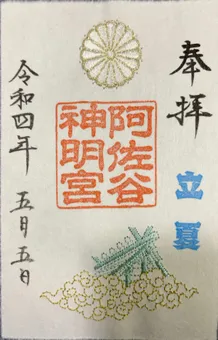 奉拝
立夏
阿佐谷
神明宮
令和四年 五月五日